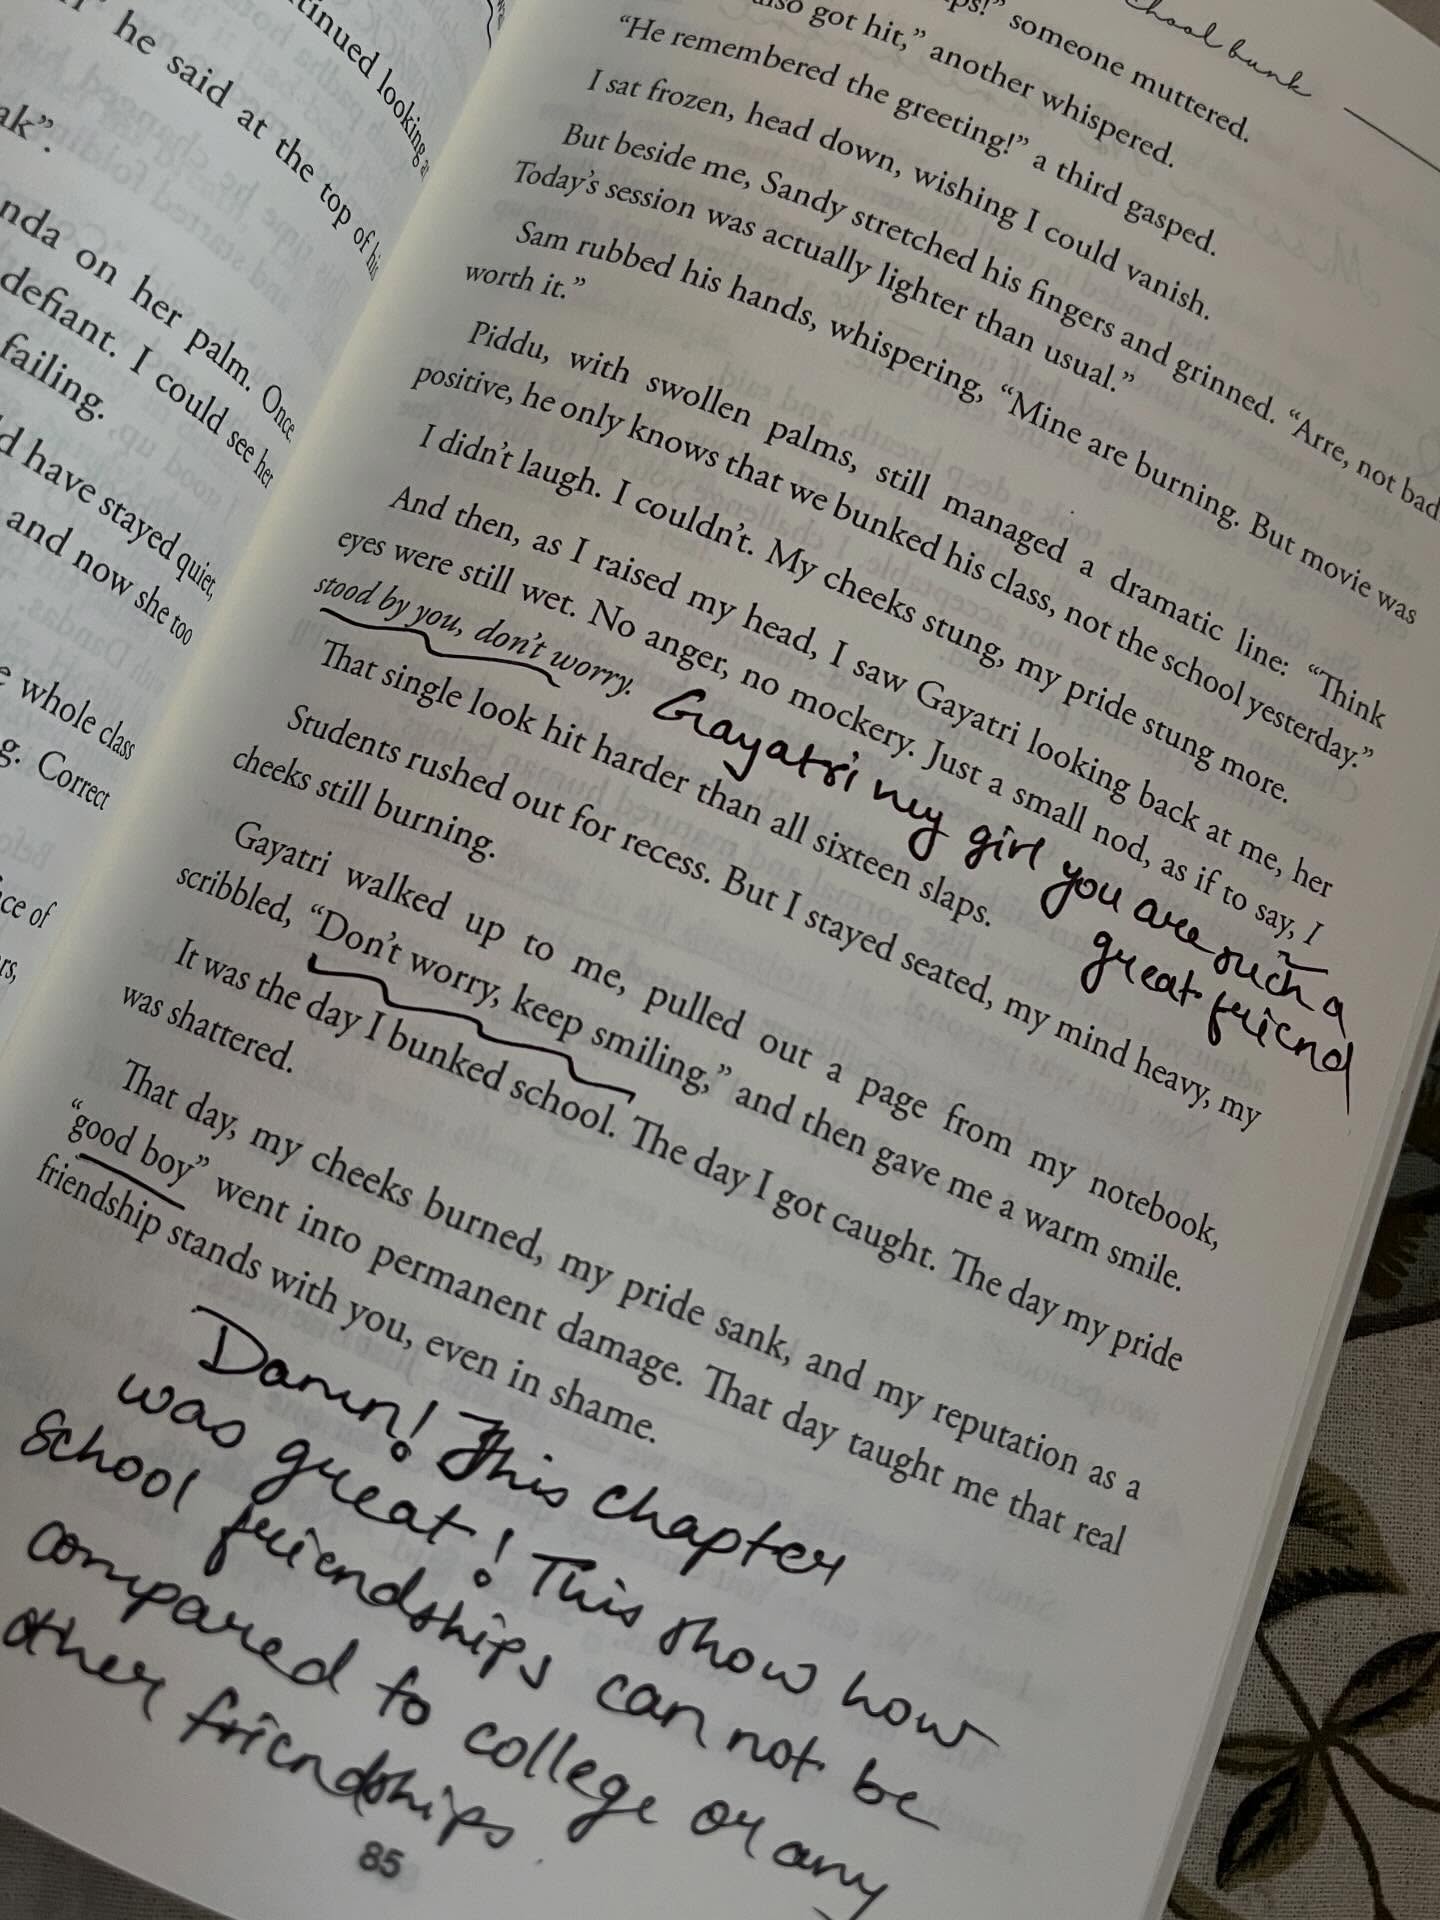 ntinued looking a
he said at the top of his
ak”.
nda on her palm. Once.
defiant. I could see her
failing.
d have stayed quiet,
and now she too
e whole class
g. Correct
ce of
rs,
chool bunk
ps!” someone muttered.
also got hit,” another whispered.
“He remembered the greeting!” a third gasped.
I sat frozen, head down, wishing I could vanish.
But beside me, Sandy stretched his fingers and grinned. “Arre, not bad
Today’s session was actually lighter than usual.”
Sam rubbed his hands, whispering, “Mine are burning. But movie was
worth it.”
Piddu, with swollen palms, still managed a dramatic line: “Think
positive, he only knows that we bunked his class, not the school yesterday.”
I didn’t laugh. I couldn’t. My cheeks stung, my pride stung more.
And then, as I raised my head, I saw Gayatri looking back at me, her
eyes were still wet. No anger, no mockery. Just a small nod, as if to say, I
stood by you, don’t worry.
Gayatri my girl you are such a
great friend
That single look hit harder than all sixteen slaps.
Students rushed out for recess. But I stayed seated, my mind heavy, my
cheeks still burning.
Gayatri walked up to me, pulled out a page from my notebook,
scribbled, “Don’t worry, keep smiling,” and then gave me a warm smile.
It was the day I bunked school. The day I got caught. The day my pride
was shattered.
That day, my cheeks burned, my pride sank, and my reputation as a
“good boy” went into permanent damage. That day taught me that real
friendship stands with you, even in shame.
Damn! This chapter
was great! This show how
school friendships can not be
compared to college or any
other friendships.
85